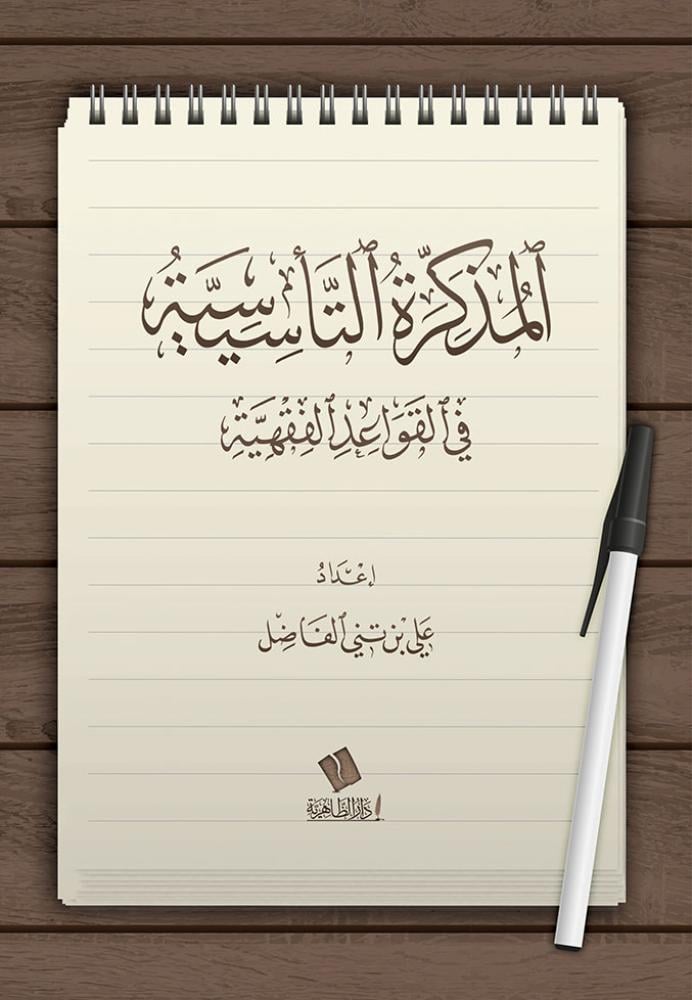 ٱلْمُذَكِّرَةُ ٱلتَّأْسِيسِيَّةُ
فِي ٱلْقَوَاعِدِ ٱلْفِقْهِيَّةِ
إِعْدَادُ
عَلِي بْن تَنِي ٱلفَاضِل
دَارُ الظَّاهِرِيَّة